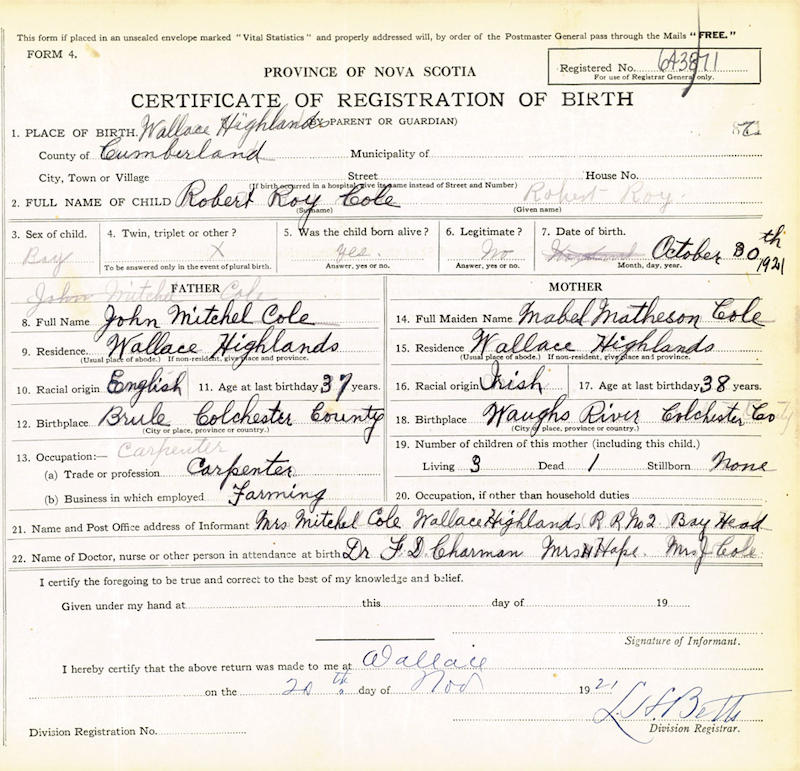 This form if placed in an unsealed envelope marked "Vital Statistics" and properly addressed will, by order of the Postmaster General pass through the Mails "FREE."
FORM 4.
Registered No. 643871
For use of Registrar General only.
PROVINCE OF NOVA SCOTIA
CERTIFICATE OF REGISTRATION OF BIRTH
(BY PARENT OR GUARDIAN)
1. PLACE OF BIRTH. Wallace Highlands
County of Cumberland Municipality of
City, Town or Village Street House No.
(If birth occurred in a hospital give its name instead of Street and Number)
2. FULL NAME OF CHILD Robert Roy Cole Robert Roy
(Surname) (Given name)
3. Sex of child. 4. Twin, triplet or other? 5. Was the child born alive? 6. Legitimate? 7. Date of birth.
Boy X yes. No October 30th 1921
To be answered only in the event of plural birth. Answer, yes or no. Answer, yes or no. Month, day, year.
FATHER
John Mitchel Cole
8. Full Name John Mitchel Cole
9. Residence Wallace Highlands
(Usual place of abode.) If non-resident, give place and province.
10. Racial origin English 11. Age at last birthday 37 years.
12. Birthplace Brule Colchester County
(City or place, province or country.)
13. Occupation:— Carpenter
(a) Trade or profession Carpenter
(b) Business in which employed Farming
MOTHER
14. Full Maiden Name Mabel Matheson Cole
15. Residence Wallace Highlands
(Usual place of abode.) If non-resident, give place and province.
16. Racial origin Irish 17. Age at last birthday 38 years.
18. Birthplace Waughs River Colchester Co
(City or place, province or country.)
19. Number of children of this mother (including this child.)
Living 3 Dead 1 Stillborn None
20. Occupation, if other than household duties
21. Name and Post Office address of Informant Mrs Mitchel Cole Wallace Highlands R R No 2 Bay Head
22. Name of Doctor, nurse or other person in attendance at birth Dr F D. Charman Mrs H Hope. Mrs J Cole
I certify the foregoing to be true and correct to the best of my knowledge and belief.
Given under my hand at this day of 19
Signature of Informant.
I hereby certify that the above return was made to me at Wallace
on the 20th day of Nov 1921
L. H. Betts
Division Registration No. Division Registrar.